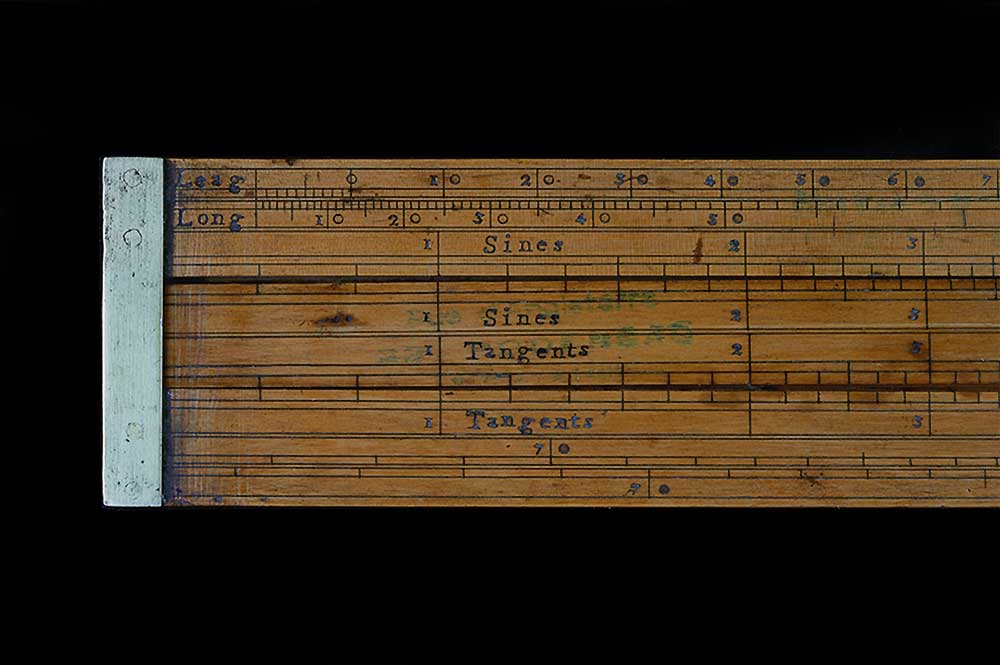 Leag 0 10 20 30 40 50 60 7
Long 10 20 30 40 50
1 Sines 2 3
1 Sines 2 3
1 Tangents 2 3
1 Tangents 3
70
70